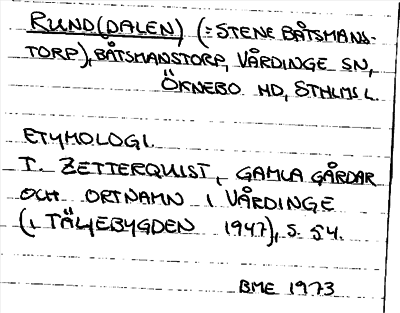 RUND(DALEN) (=STENE BÅTSMANS-
TORP), BÅTSMANSTORP, VÅRDINGE SN,
ÖKNEBO HD, STHLMS L.
ETYMOLOGI.
T. ZETTERQUIST, GAMLA GÅRDAR
OCH ORTNAMN I VÅRDINGE
(I TÄLJEBYGDEN 1947), S. 54.
BME 1973